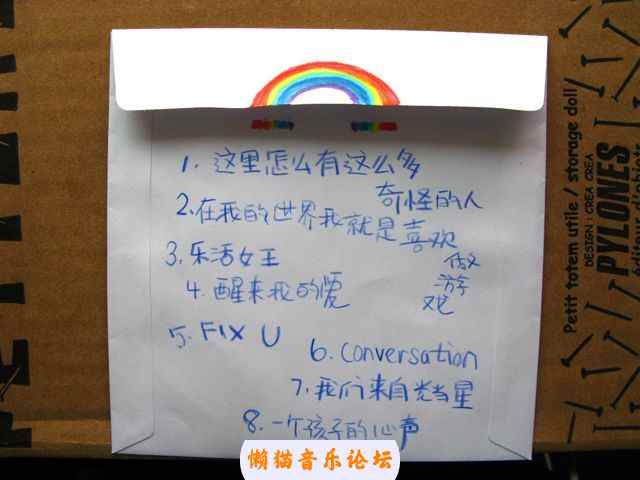 1. 这里怎么有这么多
奇怪的人
2. 在我的世界我就是喜欢
做
游
戏
3. 乐活女王
4. 醒来我的爱
5. FIX U
6. Conversation
7. 我们来自尘当星
8. 一个孩子的心声
懒猫音乐论坛
Petit totem utile / storage doll
DESIGN : CREA CREA
PYLONES